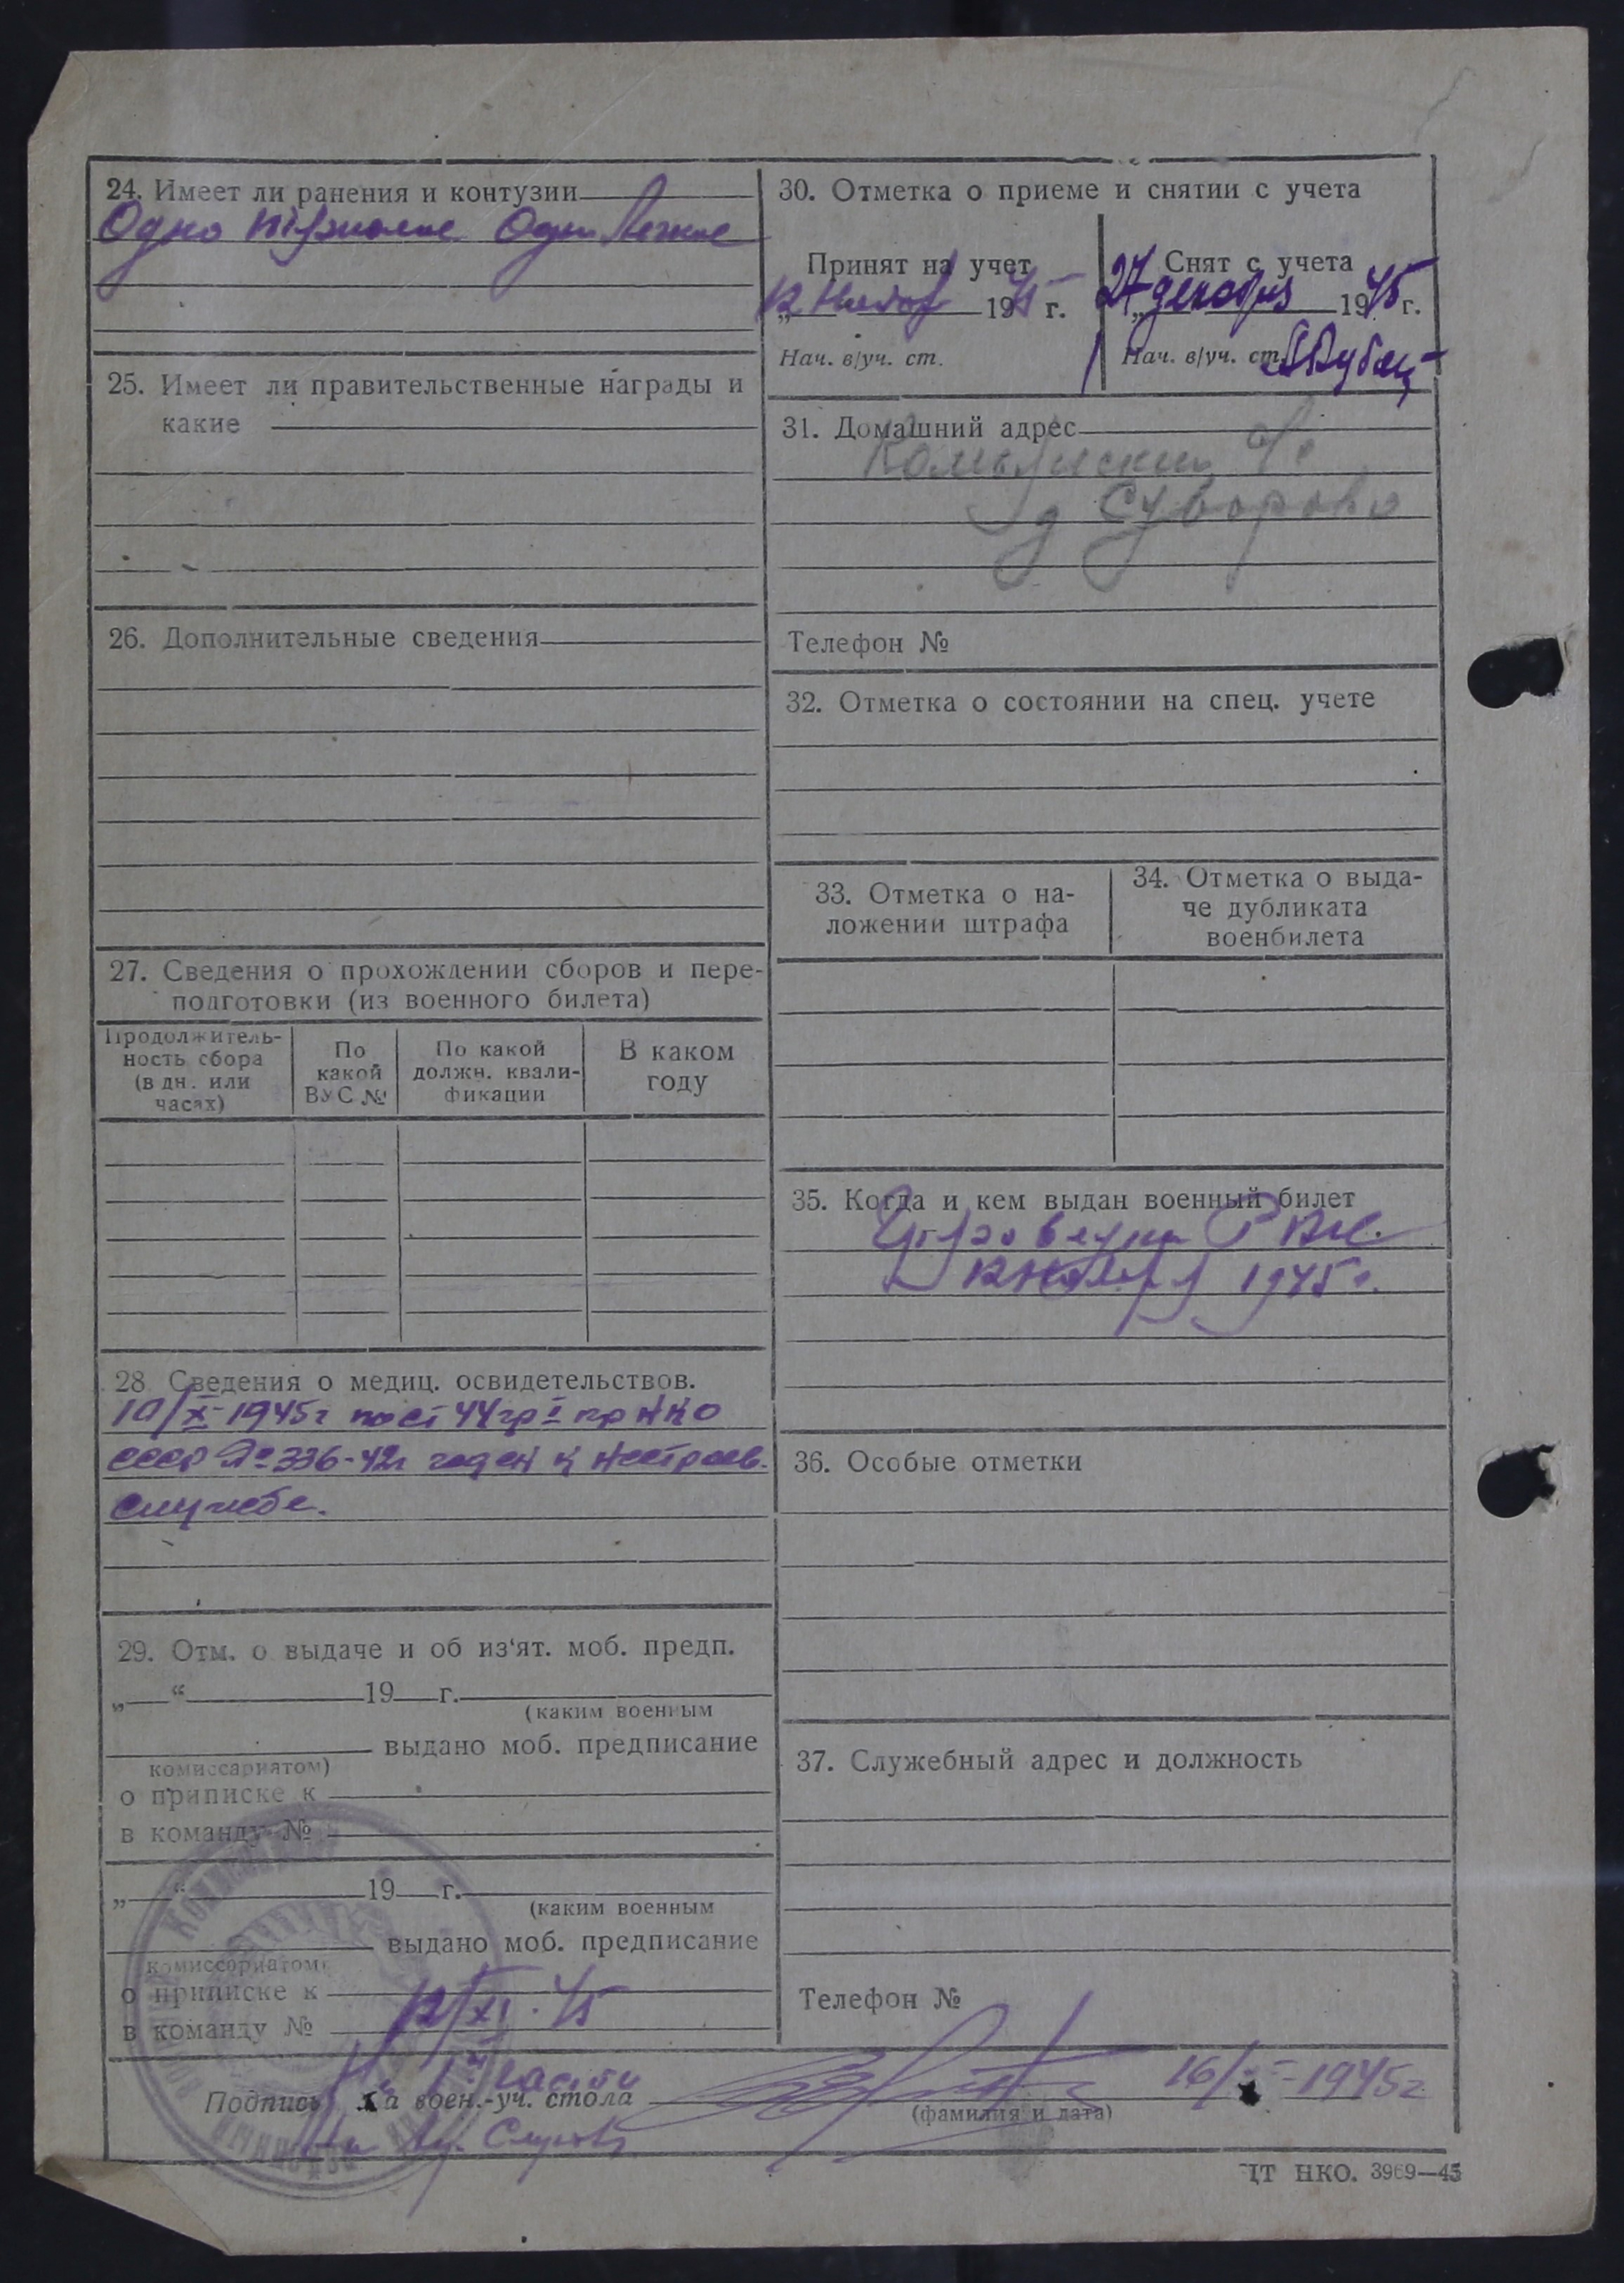 24. Имеет ли ранения и контузии
Одно тяжолое Одно легкое
25. Имеет ли правительственные награды и
какие
26. Дополнительные сведения
27. Сведения о прохождении сборов и пере-
подготовки (из военного билета)
Продолжитель-
ность сбора
(в дн. или
часах)
По
какой
ВУС №
По какой
должн. квали-
фикации
В каком
году
28 Сведения о медиц. освидетельствов.
10/X-1945г по ст 44 гр I пр НКО
СССР №336-42г годен к нестроев.
службе.
29. Отм. о выдаче и об из‘ят. моб. предп.
„ “ 19 г.
(каким военным
выдано моб. предписание
комиссариатом)
о приписке к
в команду №
„ “ 19 г.
(каким военным
выдано моб. предписание
комиссариатом)
о приписке к
в команду №
12/XI.45
30. Отметка о приеме и снятии с учета
Принят на учет
12 1945 г.
Нач. в/уч. ст.
Снят с учета
27 декабря 1945 г.
Нач. в/уч. ст.
31. Домашний адрес
д Суворово
Телефон №
32. Отметка о состоянии на спец. учете
33. Отметка о на-
ложении штрафа
34. Отметка о выда-
че дубликата
военбилета
35. Когда и кем выдан военный билет
РВК.
12 ноября 1945г.
36. Особые отметки
37. Служебный адрес и должность
Телефон №
1й части
Подпись на воен.-уч. стола
16/ -1945г
(фамилия и дата)
ЦТ НКО. 3969—45